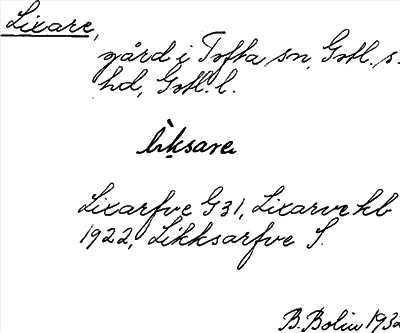 Lixare,
gård i Tofta sn, Gotl. s.
hd, Gotl. l.
lìksarę
Lixarfve G31, Lixarve kb
1922, Likksarfve S.
B. Bolin 1932